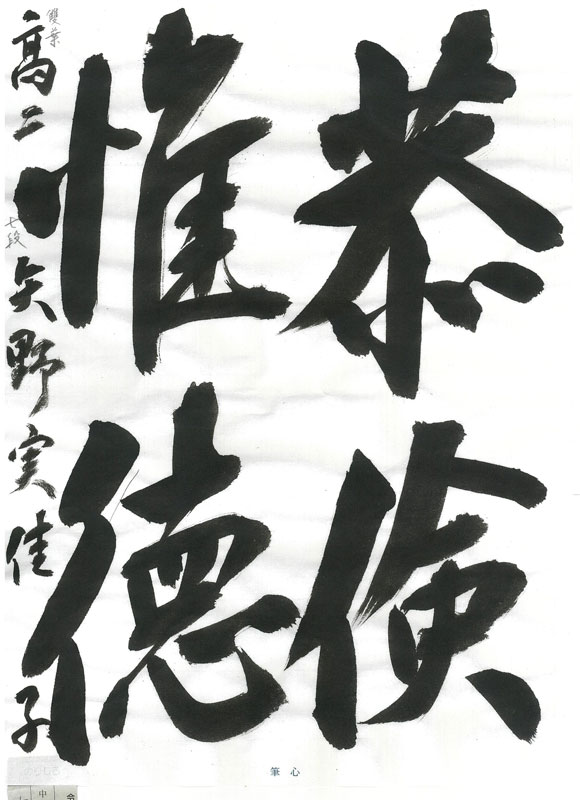 恭倹
惟徳
雙葉
高二
七段
矢野実佳子
筆心
中